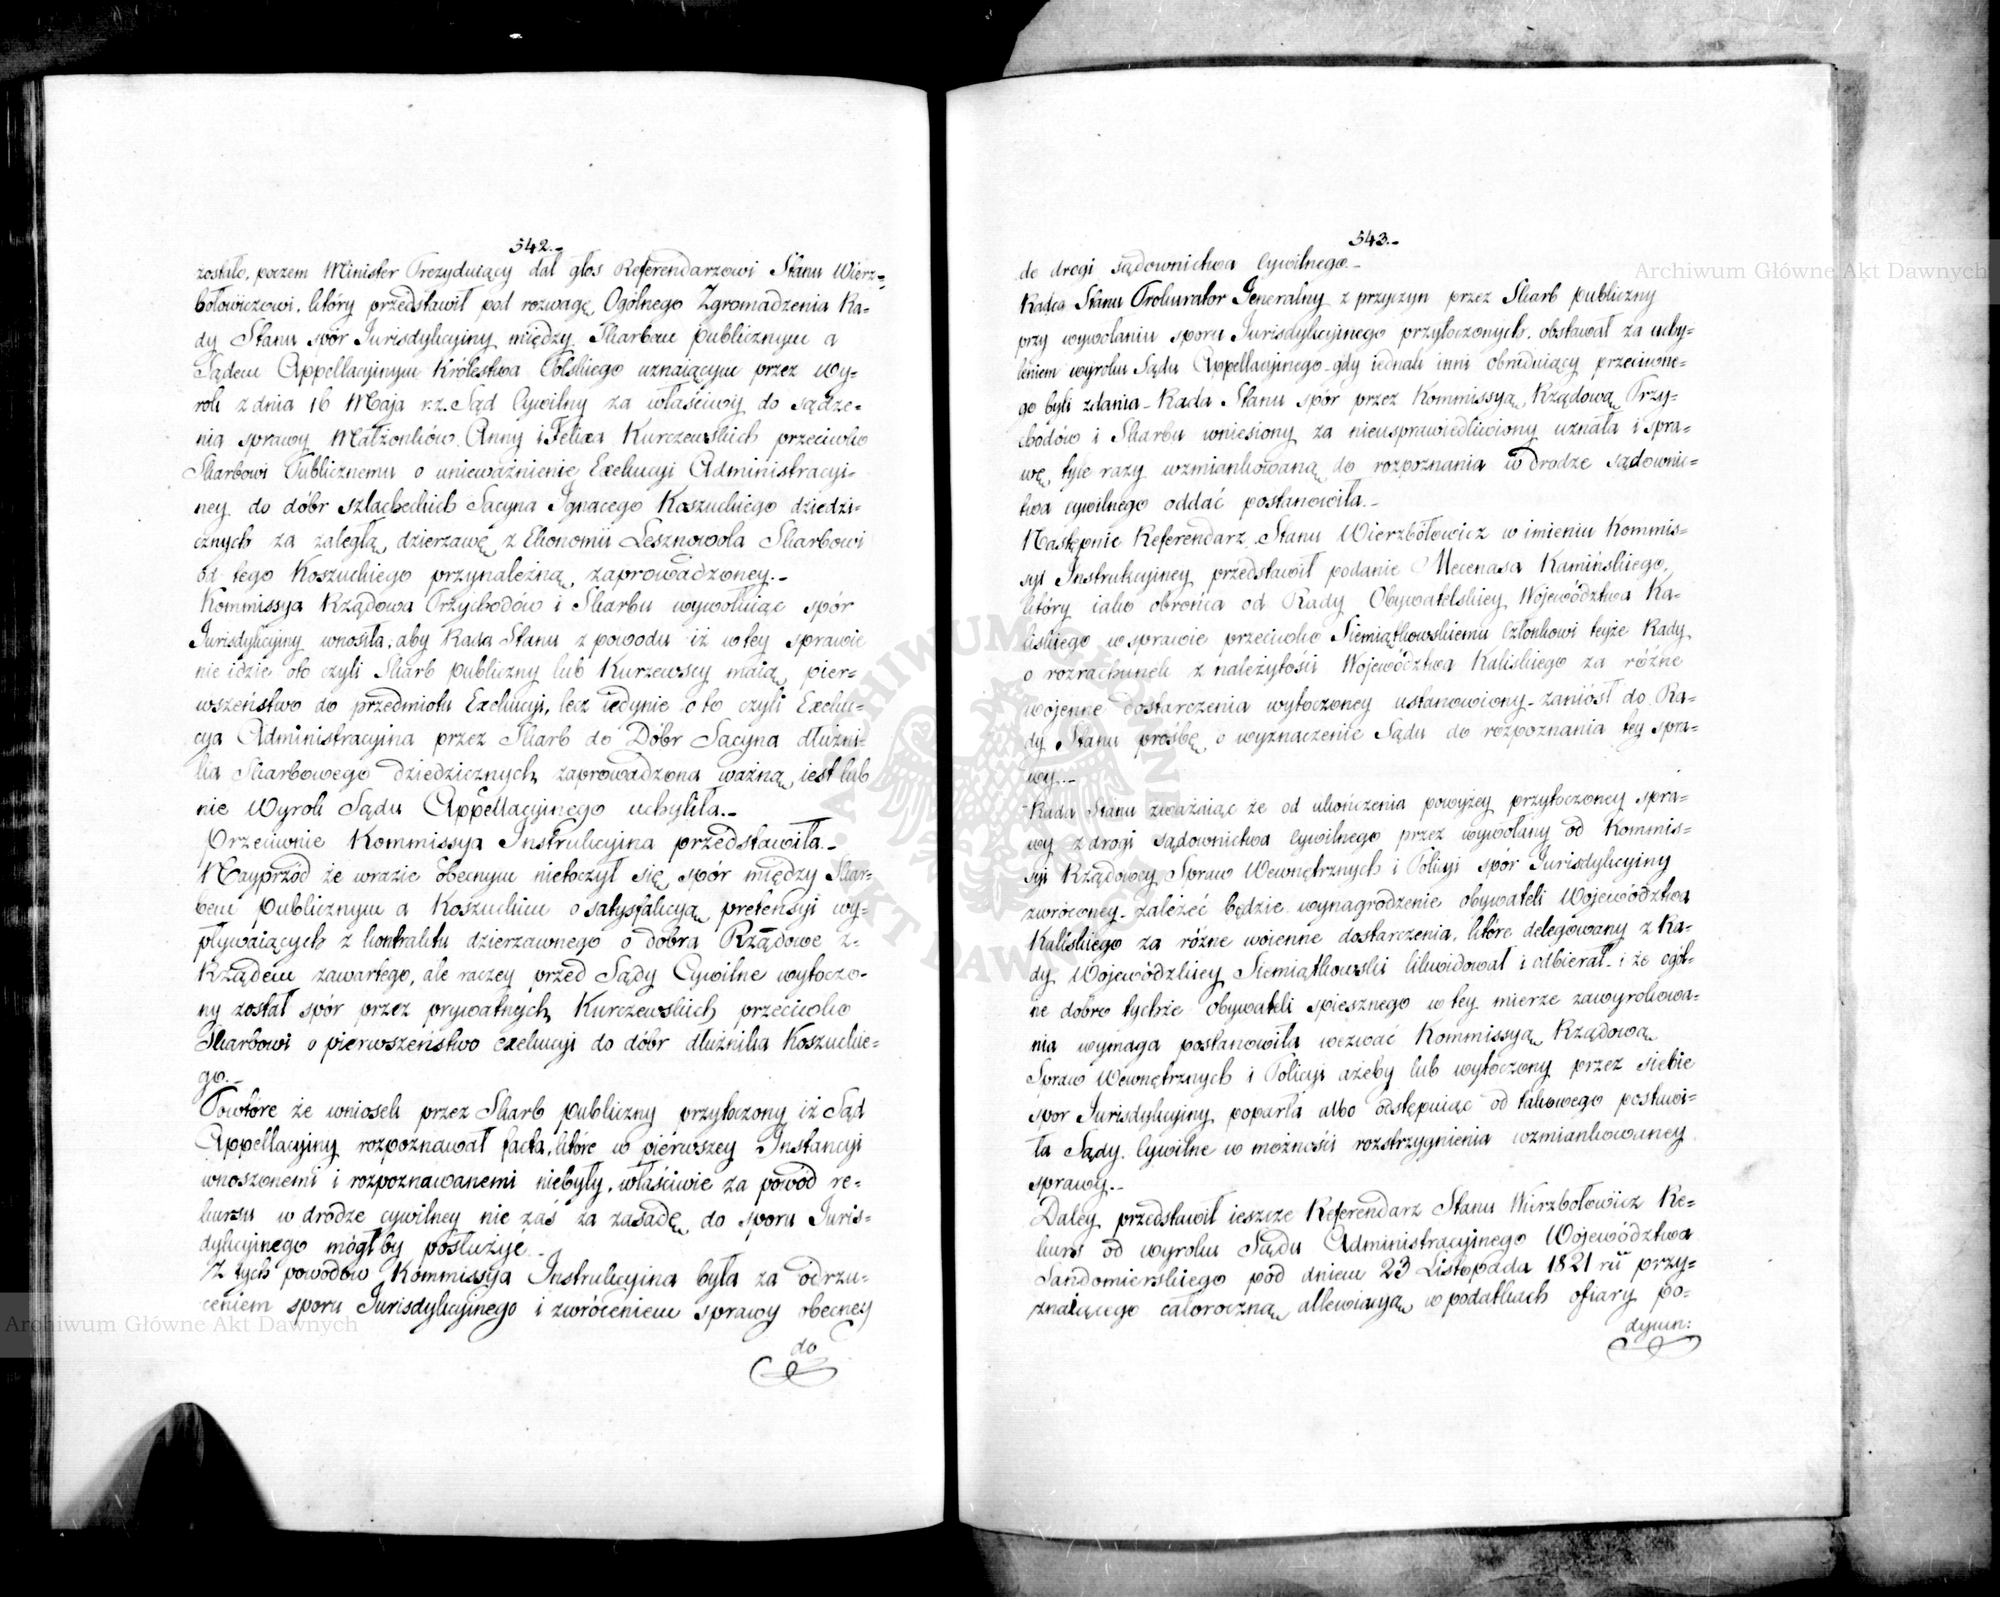 542.-
zostało, poczem Minister Prezyduiący dał głos Referendarzowi Stanu Wierz=
bołowiczowi, który przedstawił pod rozwagę Ogólnego Zgromadzenia Ra-
dy Stanu spór Jurisdykcyiny między Skarbem publicznym a
Sądem Appellacyinym Królestwa Polskiego uznaiącym przez wy-
rok z dnia 16 Maja r.z. Sąd Cywilny za właściwy do sądze-
nia sprawy Małżonków Anny i Felixa Kurczewskich przeciwko
Skarbowi Publicznemu o unieważnienie Exekucyi Administracyi-
ney do dóbr szlacheckich Sacyna Ignacego Koszuckiego dziedzi-
cznych za zaległą dzierzawę z Ekonomii Lesznowola Skarbowi
od tego Koszuckiego przynależną, zaprowadzoney.-
Kommissya Rządowa Przychodów i Skarbu wywołuiąc spór
Jurisdykcyiny wnosiła, aby Rada Stanu z powodu iż w tey sprawie
nie idzie oto czyli Skarb publiczny lub Kurzewscy maią pier-
wszeństwo do przedmiotu Exekucyi, lecz iedynie o to czyli Exeku-
cya Administracyina przez Skarb do Dóbr Sacyna dłużni-
ka Skarbowego dziedzicznych zaprowadzona ważną iest lub
nie Wyrok Sądu Appellacyinego uchyliła.-
Przeciwnie Kommissya Instrukcyina przedstawiła.-
Nayprzód że wrazie obecnym nietoczył się spór między Skar-
bem publicznym a Koszuckim o satysfakcyą pretensyi wy-
pływaiących z kontraktu dzierzawnego o dobra Rządowe z-
Rządem zawartego, ale raczey przed Sądy Cywilne wytoczo-
ny został spór przez prywatnych Kurczewskich przeciwko
Skarbowi o pierwszeństwo exekucyi do dóbr dłużnika Koszuckie=
go.-
Powtóre że wniosek przez Skarb publiczny przytoczony iż Sąd
Appellacyiny rozpoznawał facta, które w pierwszey Instancyi
wnoszonemi i rozpoznawanemi niebyły, właściwie za powód re-
kursu w drodze cywilney nie zaś za zasadę do sporu Juris=
dykcyinego mógłby posłużyć.-
Z tych powodów Kommissya Instrukcyina była za odrzu-
ceniem sporu Jurisdykcyinego i zwróceniem sprawy obecney
do
543.-
do drogi sądownictwa Cywilnego.-
Radca Stanu Prokurator Jeneralny z przyczyn przez Skarb publiczny
przy wywołaniu sporu Jurisdykcyinego przytoczonych, obstawał za uchy-
leniem wyroku Sądu Appellacyinego - gdy iednak inni obraduiący przeciwne-
go byli zdania - Rada Stanu spór przez Kommissyą Rządową Przy-
chodów i Skarbu wniesiony za nieusprawiedliwiony uznała i spra-
wę, tyle razy wzmiankowaną do rozpoznania w drodze sądownic-
twa cywilnego oddać postanowiła.-
Następnie Referendarz Stanu Wierzbołowicz w imieniu Kommis-
syi Instrukcyiney przedstawił podanie Mecenasa Kamińskiego,
który iako obrońca od Rady Obywatelskiey Województwa Ka-
liskiego w sprawie przeciwko Siemiątkowskiemu Członkowi teyże Rady
o rozrachunek z należytości Województwa Kaliskiego za różne
wojenne dostarczenia wytoczoney ustanowiony - zaniósł do Ra-
dy Stanu prośbę o wyznaczenie Sądu do rozpoznania tey spra-
wy.-
Rada Stanu zważaiąc że od ukończenia powyżey przytoczoney spra-
wy z drogi sądownictwa Cywilnego przez wywołany od Kommis-
syi Rządowey Spraw Wewnętrznych i Policyi spór Jurisdykcyiny
zwróconey - zależeć będzie wynagrodzenie obywateli Województwa
Kaliskiego za różne woienne dostarczenia, które delegowany z Ra-
dy Wojewódzkiey Siemiątkowski likwidował i odbierał - i że ogól-
ne dobro tychże obywateli spiesznego w tey mierze zawyrokowa-
nia wymaga postanowiła wezwać Kommissyą Rządową
Spraw Wewnętrznych i Policyi ażeby lub wytoczony przez siebie
spor Jurisdykcyiny poparła albo odstępuiąc od takowego postawi-
ła Sądy Cywilne w możności rozstrzygnienia wzmiankowaney
sprawy.-
Daley przedstawił ieszcze Referendarz Stanu Wierzbołowicz Re-
kurs od wyroku Sądu Administracyinego Województwa
Sandomierskiego pod dniem 23 Listopada 1821 ru przy=
znaiącego całoroczną allewiacyą w podatkach ofiary po-
dymn:
Archiwum Główne Akt Dawnych
Archiwum Główne Akt Dawnych
ARCHIWUM GŁÓWNE AKT DAWNYCH